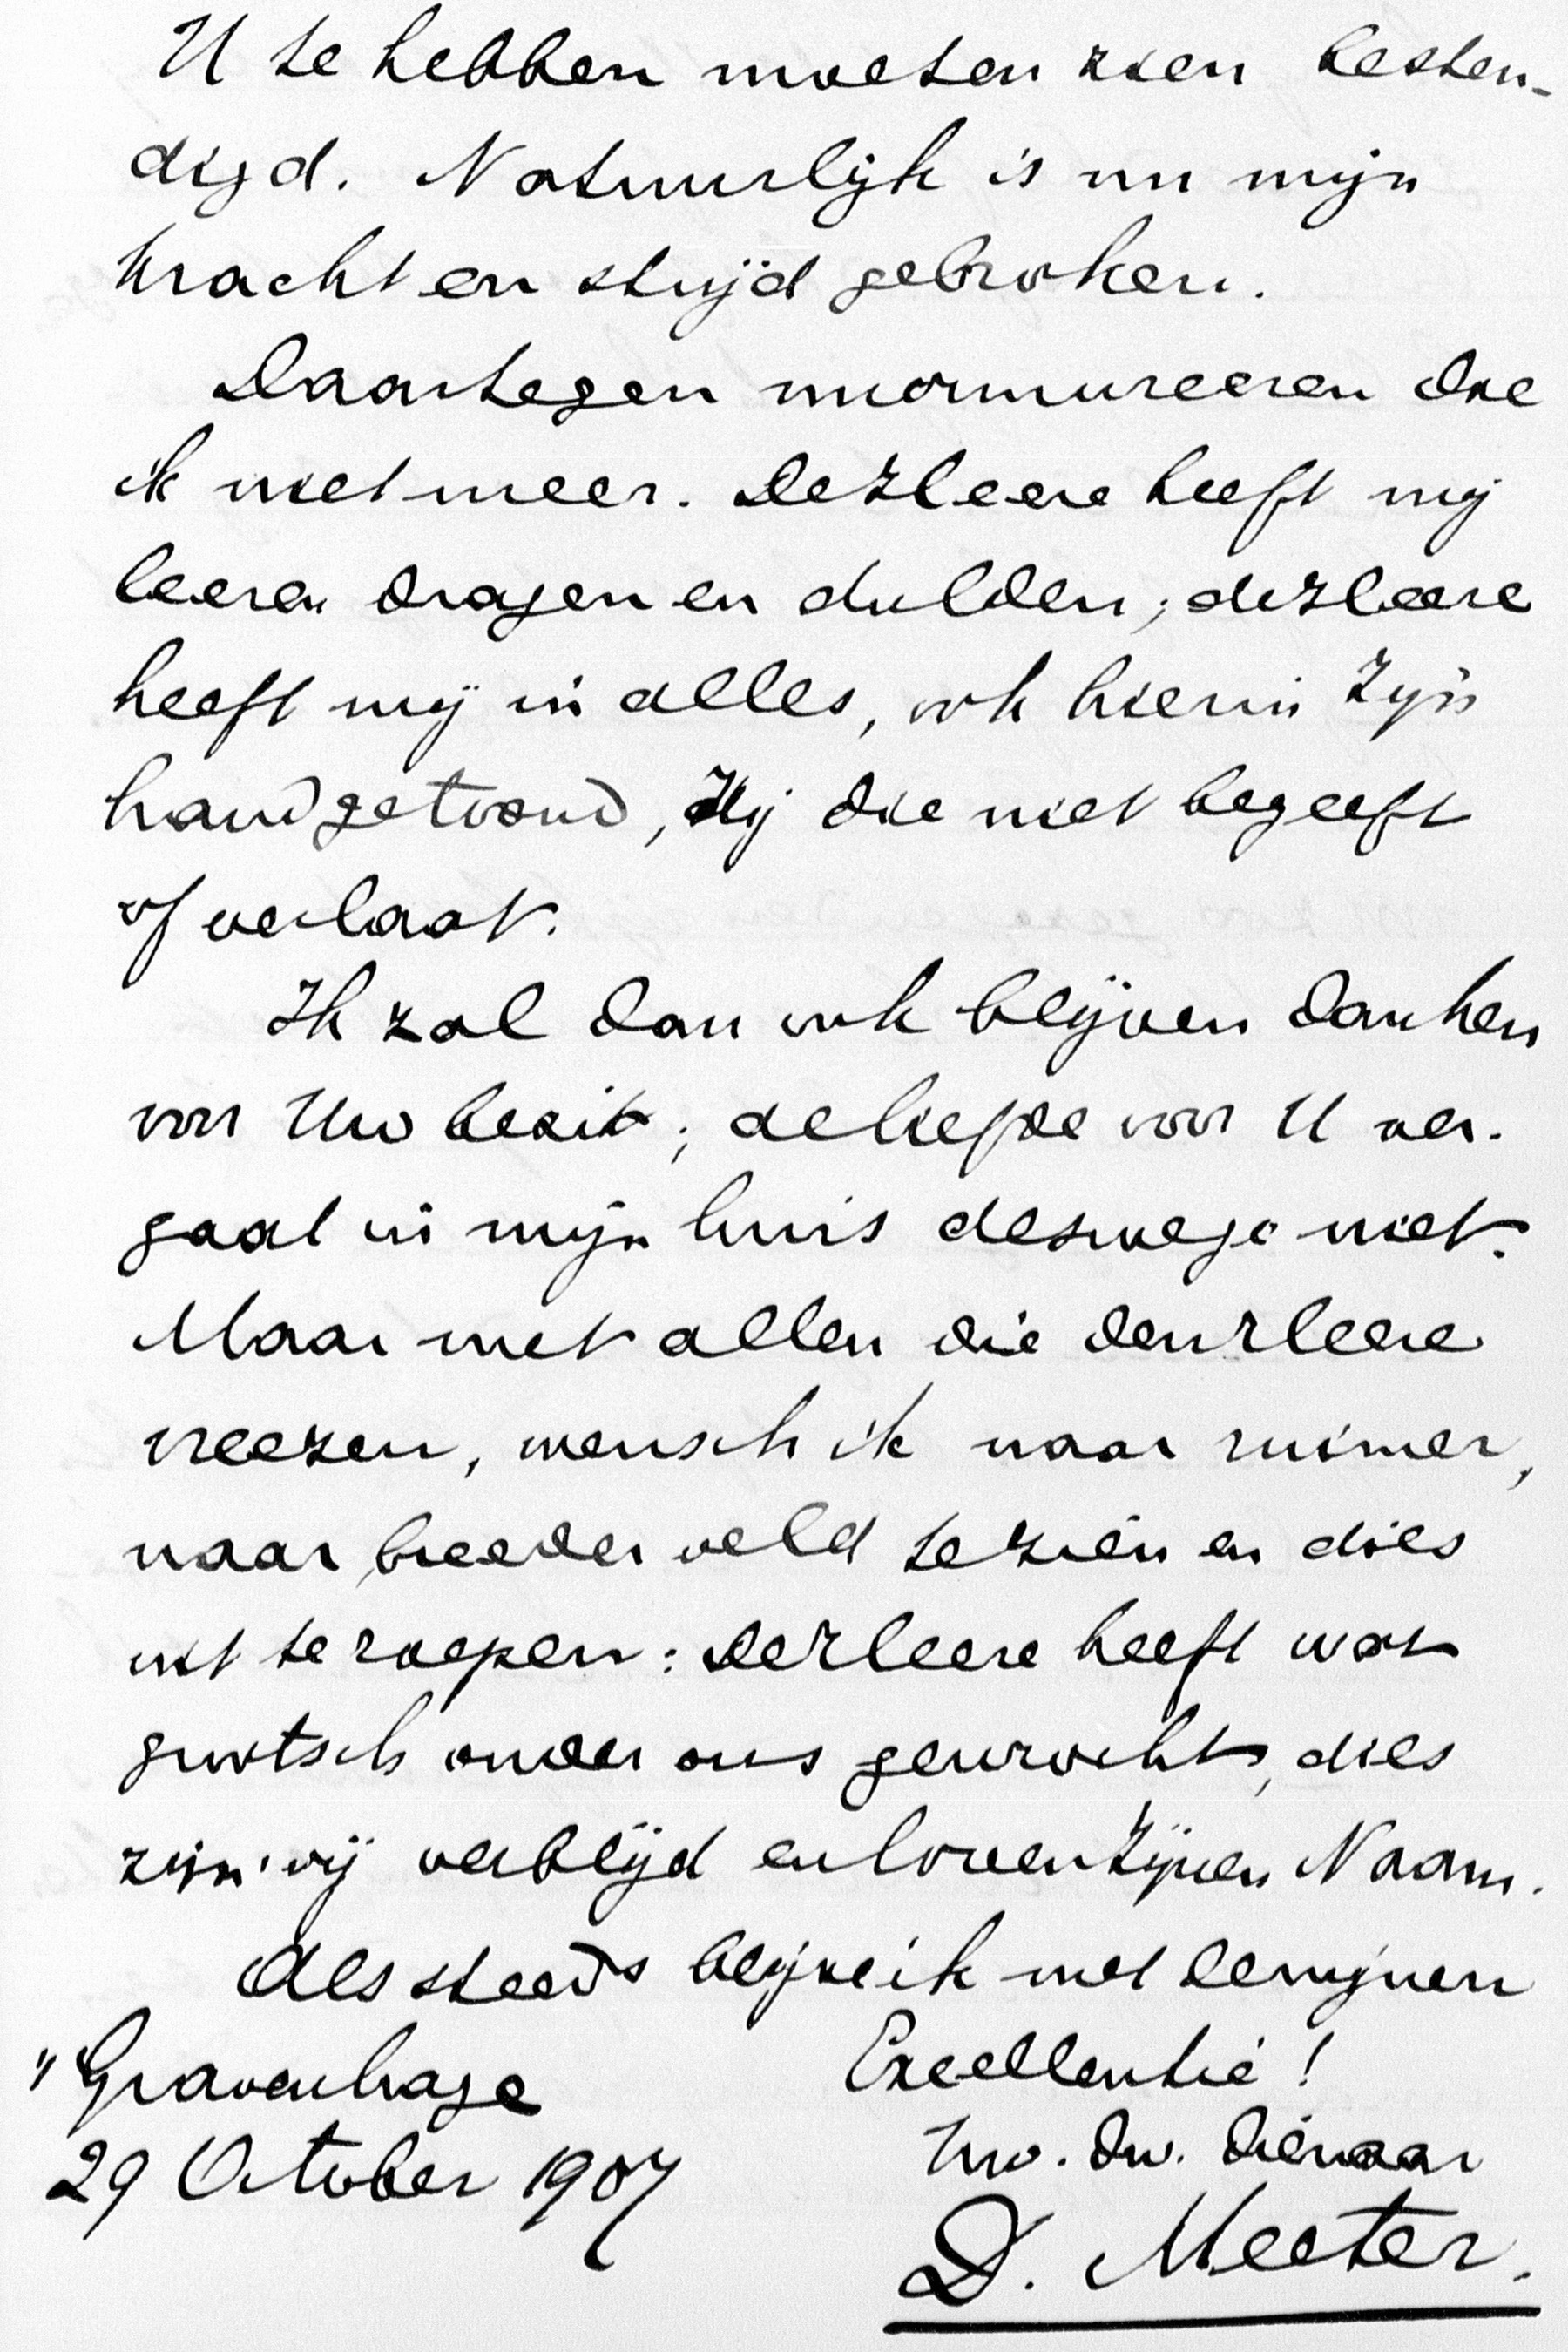 U te hebben moeten zien besten-
digd. Natuurlijk is nu mijn
kracht en strijd gebroken.
Daartegen murmureeren doe
ik niet meer. De Heere heeft mij
leeren dragen en dulden; de Heere
heeft mij in alles, ook hierin Zijn
hand getoond, Hij die niet begeeft
of verlaat.
Ik zal dan ook blijven danken
voor Uw bezit; de liefde voor U ver-
gaat in mijn huis deswege niet.
Maar met allen die den Heere
vreezen, wensch ik naar ruimer,
naar breeder veld te zien en dies
uit te roepen: De Heere heeft wat
grootsch onder ons gewrocht, dies
zijn wij verblijd en loven Zijnen Naam.
Als steeds blijve ik met den mijnen
Excellentie!
Uw. dw. dienaar
D. Meeter.
's Gravenhage
29 October 1907